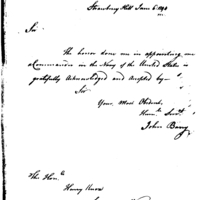 Strawberry Hill June 6. 1794
Sir
The honor done me in appointing me
a Commander in the Navy of the United States is
gratefully Acknowledged and accepted by
Sir
Your Most Obedient
Hum. Servt
John Barry
The Honble
Henry Knox